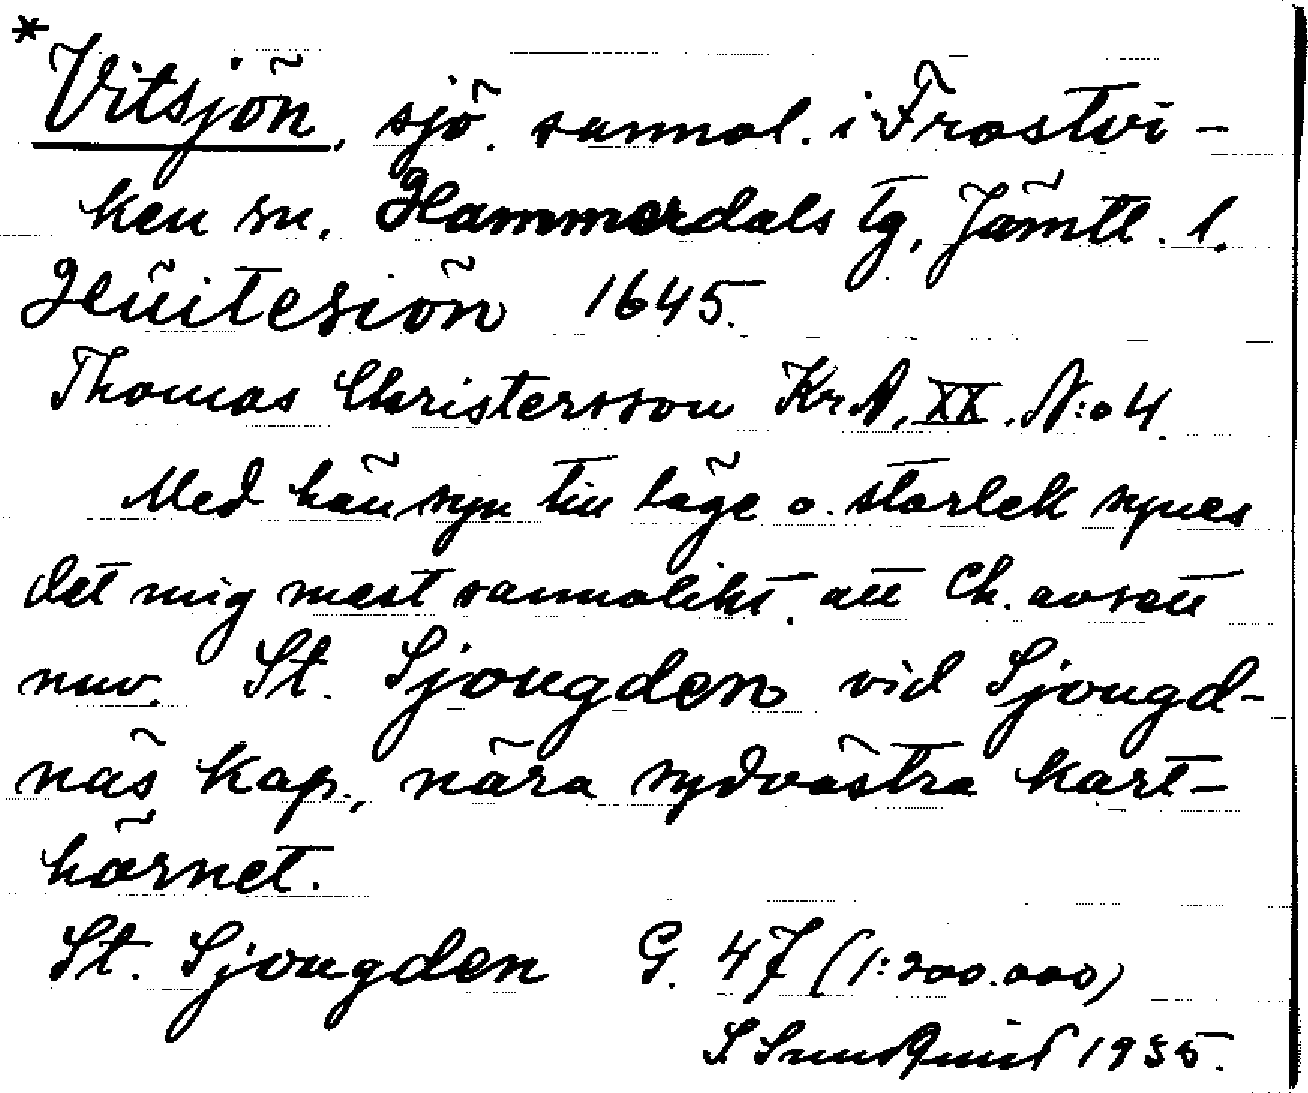 * Vitsjön, sjö. sannol. i Frostvi-
ken sn. Hammerdals tg, Jämtl. l.
Hũitesiön 1645.
Thomas Christersson KrA, XX. N:o 4.
Med hänsyn till läge o. storlek synes
det mig mest sannolikt, att Ch. avsett
nuv. St. Sjougden vid Sjougd-
näs kap., nära sydvästra kart-
hörnet.
St. Sjougden G. 47 (1:200.000)
S. Sundqvist 1935.